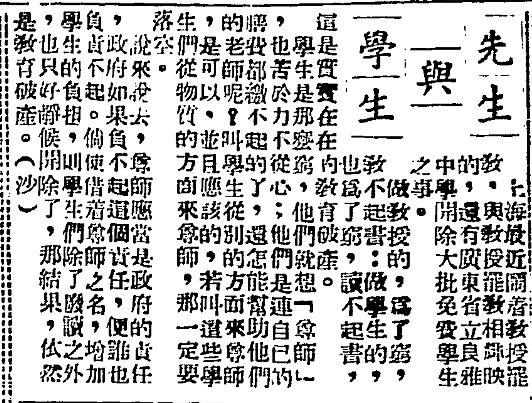 先生
與
學生
上海最近鬧着教授罷
教，與教授罷教相輝映
的，還有廣東省立良雅
中學開除大批免費學生
之事。
做教授的，爲了窮，
教不起書；做學生的，
也爲了窮，讀不起書，
這是實實在在的教育破產。
學生是那麼窮，他們就想「尊師」
，也苦於力不從心；他們是連自已的
膳費都繳不起的了，還怎能幫助他們
的老師呢？叫學生從別的方面來尊師
，是可以，並且應該的，若叫這些學
生們從物質的方面來尊師，那一定要
落空。
說來說去，尊師應當是政府的責任
，政府如果負不起這個責任，便誰也
負責不起。倘使借着尊師之名，增加
學生的負担，則學生們除了廢讀之外
，也只好靜候開除了，那結果，依然
是教育破產。（沙）